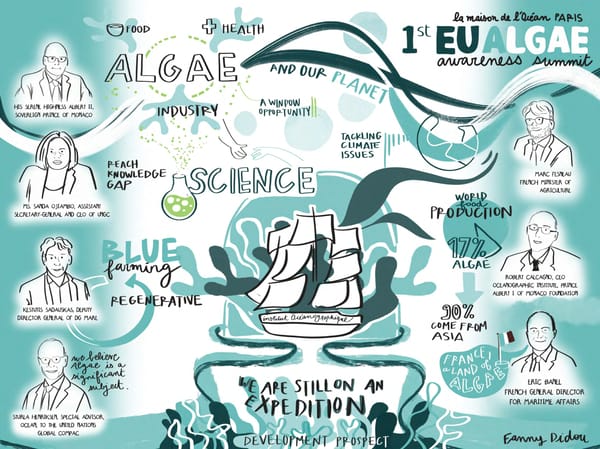 la maison de l'Océan PARIS
1st EU ALGAE
awareness summit
FOOD
HEALTH
ALGAE
AND OUR PLANET
INDUSTRY
A WINDOW
OPPORTUNITY
TACKLING
CLIMATE
ISSUES
HIS SERENE HIGHNESS ALBERT II,
SOVEREIGN PRINCE OF MONACO
MARC FESNEAU
FRENCH MINISTER OF
AGRICULTURE
REACH
KNOWLEDGE
GAP
SCIENCE
MS. SANDA OJIAMBO, ASSISTANT
SECRETARY-GENERAL AND CEO OF UNGC
WORLD
food
PRODUCTION
17%
ALGAE
ROBERT CALCAGNO, CEO
OCEANOGRAPHIC INSTITUTE, PRINCE
ALBERT I OF MONACO FOUNDATION
BLUE
farming
REGENERATIVE
KESTUTIS SADAUSKAS, DEPUTY
DIRECTOR GENERAL OF DG MARE
institut océanographique
90%
COME FROM
ASIA
we believe
algae is a
significant
subject.
FRANCE,
A LAND OF
ALGAE
WE ARE STILL ON AN
EXPEDITION
STURLA HENRIKSEN, SPECIAL ADVISOR,
OCEAN, TO THE UNITED NATIONS
GLOBAL COMPAC
ERIC BANEL
FRENCH GENERAL DIRECTOR
FOR MARITIME AFFAIRS
DEVELOPMENT PROSPECT
Fanny Didou